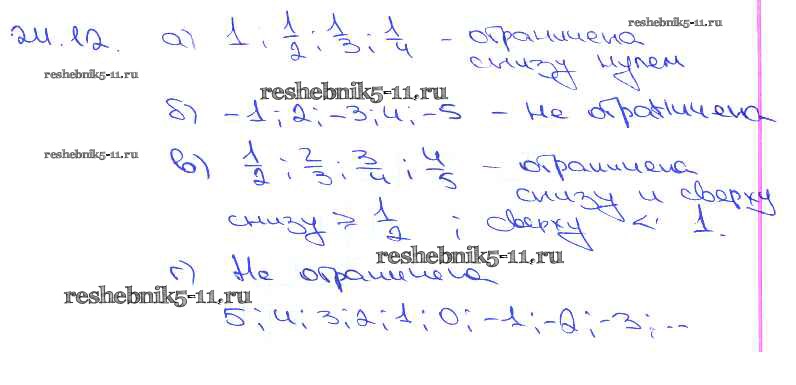 24.12. а) 1; 1/2; 1/3; 1/4 – ограничена
снизу нулем
б) -1; 2; -3; 4; -5 – не ограничена
в) 1/2; 2/3; 3/4; 4/5 – ограничена
снизу и сверху
снизу ≥ 1/2; сверху < 1.
г) Не ограничена
5; 4; 3; 2; 1; 0; -1; -2; -3; ...
reshebnik5-11.ru
reshebnik5-11.ru
reshebnik5-11.ru
reshebnik5-11.ru
reshebnik5-11.ru
reshebnik5-11.ru